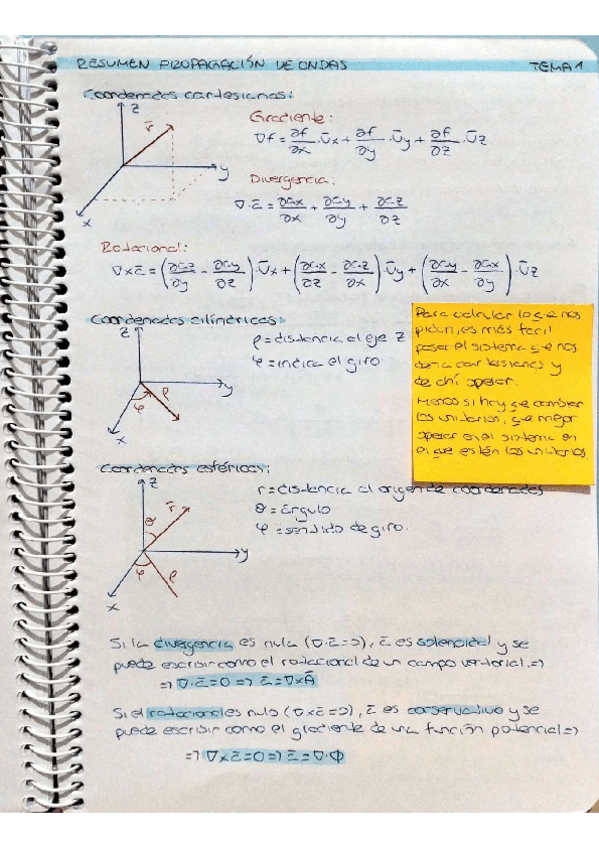 RESUMEN PROPAGACIÓN DE ONDAS TEMA 1
Coordenadas cartesianas:
z
r̄
y
x
Gradiente:
∇f = ∂f/∂x · Ūx + ∂f/∂y · Ūy + ∂f/∂z · Ūz
Divergencia:
∇·ā = ∂ax/∂x + ∂ay/∂y + ∂az/∂z
Rotacional:
∇xā = (∂az/∂y - ∂ay/∂z) · Ūx + (∂ax/∂z - ∂az/∂x) · Ūy + (∂ay/∂x - ∂ax/∂y) · Ūz
Coordenadas cilíndricas:
z
y
x
φ
ρ
ρ = distancia al eje z
φ = indica el giro
Para calcular lo que nos
pidan, es más fácil
pasar el sistema que nos
den a cartesianas y
de ahí operar.
Menos si hay que cambiar
los unitarios, que mejor
operar en el sistema en
el que estén los unitarios.
Coordenadas esféricas:
z
r̄
θ
y
φ
ρ
x
r = distancia al origen de coordenadas
θ = ángulo
φ = sentido de giro.
Si la divergencia es nula (∇·ā=0), ā es solenoidal y se
puede escribir como el rotacional de un campo vectorial. =>
=> ∇·ā=0 => ā=∇xĀ
Si el rotacional es nulo (∇xā=0), ā es conservativo y se
puede escribir como el gradiente de una función potencial =>
=> ∇xā=0 => ā=∇·Φ